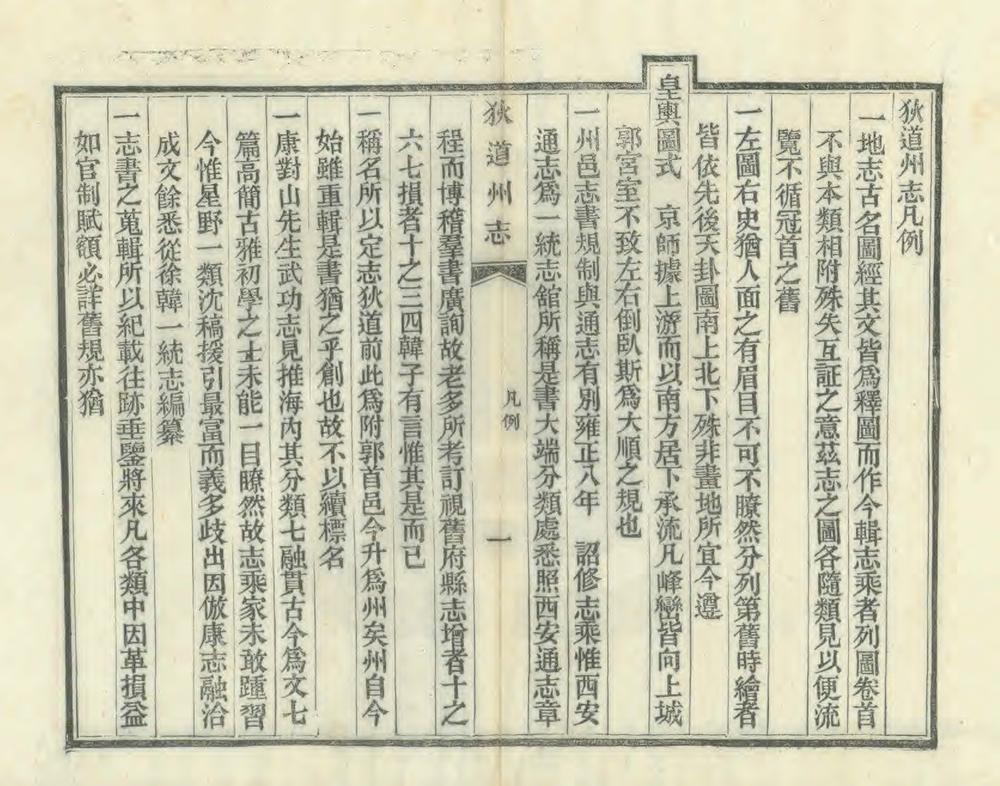 狄道州志凡例
一地志古名圖經其文皆爲釋圖而作今輯志乘者列圖卷首
不與本類相附殊失互証之意茲志之圖各隨類見以便流
覽不循冠首之舊
一左圖右史猶人面之有眉目不可不瞭然分列第舊時繪者
皆依先後天卦圖南上北下殊非畫地所宜今遵
皇輿圖式　京師據上游而以南方居下承流凡峰巒皆向上城
郭宮室不致左右倒臥斯爲大順之規也
一州邑志書規制與通志有別雍正八年　詔修志乘惟西安
通志爲一統志舘所稱是書大端分類處悉照西安通志章
狄道州志
凡例
一
程而博稽羣書廣詢故老多所考訂視舊府縣志增者十之
六七損者十之三四韓子有言惟其是而已
一稱名所以定志狄道前此爲附郭首邑今升爲州矣州自今
始雖重輯是書猶之乎創也故不以續標名
一康對山先生武功志見推海內其分類七融貫古今爲文七
篇高簡古雅初學之士未能一目瞭然故志乘家未敢踵習
今惟星野一類沈稿援引最富而義多歧出因倣康志融洽
成文餘悉從徐韓一統志編纂
一志書之蒐輯所以紀載往跡垂鑒將來凡各類中因革損益
如官制賦額必詳舊規亦猶